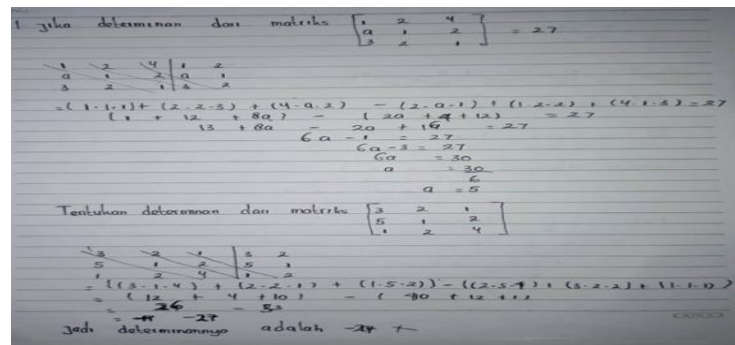 1 jika determinan dari matriks [1 2 4
a 1 2
3 2 1] = 27
1 2 4 | 1 2
a 1 2 | a 1
3 2 1 | 3 2
= (1·1·1) + (2·2·3) + (4·a·2) - (2·a·1) + (1·2·2) + (4·1·3) = 27
(1 + 12 + 8a) - (2a + 4 + 12) = 27
13 + 8a - 2a + 16 = 27
6a - = 27
6a - 3 = 27
6a = 30
a = 30
6
a = 5
Tentukan determinan dari matriks [3 2 1
5 1 2
1 2 4]
3 2 1 | 3 2
5 1 2 | 5 1
1 2 4 | 1 2
= ((3·1·4) + (2·2·1) + (1·5·2)) - ((2·5·4) + (3·2·2) + (1·1·1))
= (12 + 4 + 10) - (40 + 12 + 1)
= 26 - 53
= -27
Jadi determinannya adalah -27